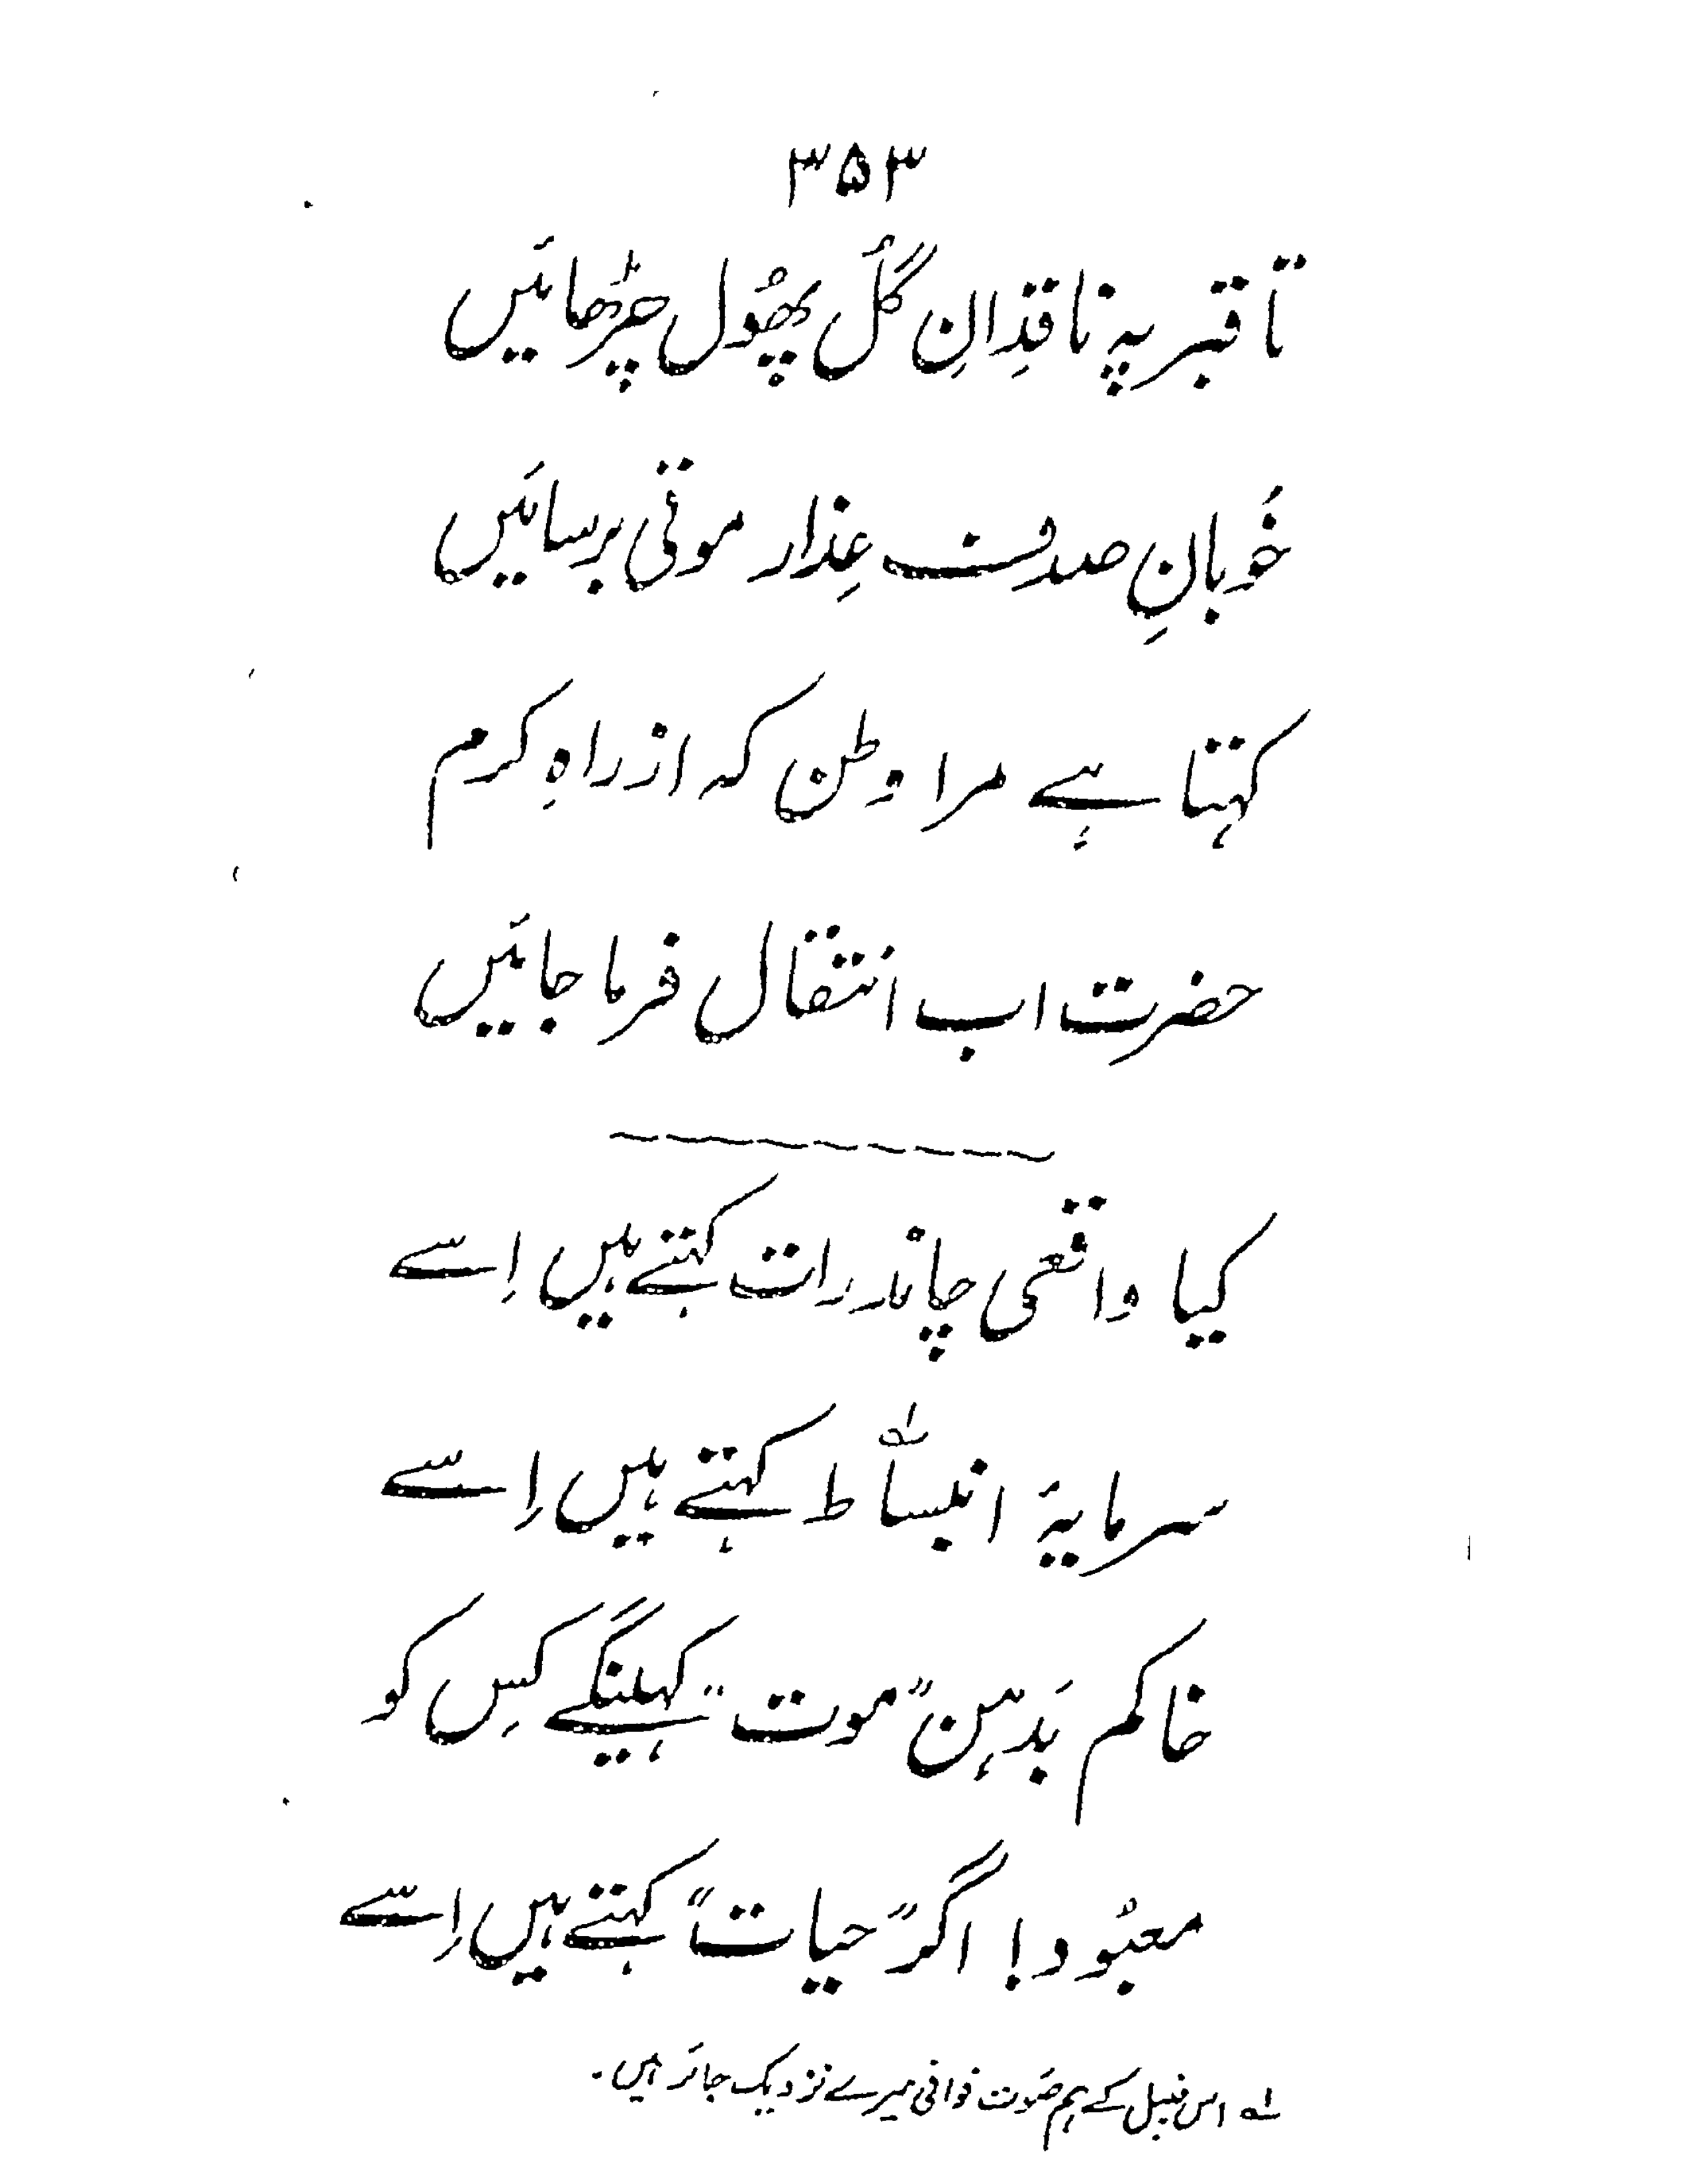 ۳۵۳
تا قبر پہ ناقدانِ گُل پھُول چڑھائیں
خُوبانِ صدف عِذار موتی برسائیں
کہتا ہے مرا وطن کہ از راہِ کرم
حضرت اب انتقال فرما جائیں
کیا واقعی چاند رات کہتے ہیں اِسے
سرمایۂ انبساط؎۱ کہتے ہیں اِسے
خاکم بَدہن "موت" کہیںگے کِس کو
معبُود! اگر "حیات" کہتے ہیں اِسے
؎۱ اس قبیل کے ہم صَوت قوافی میرے نزدیک جائز ہیں۔